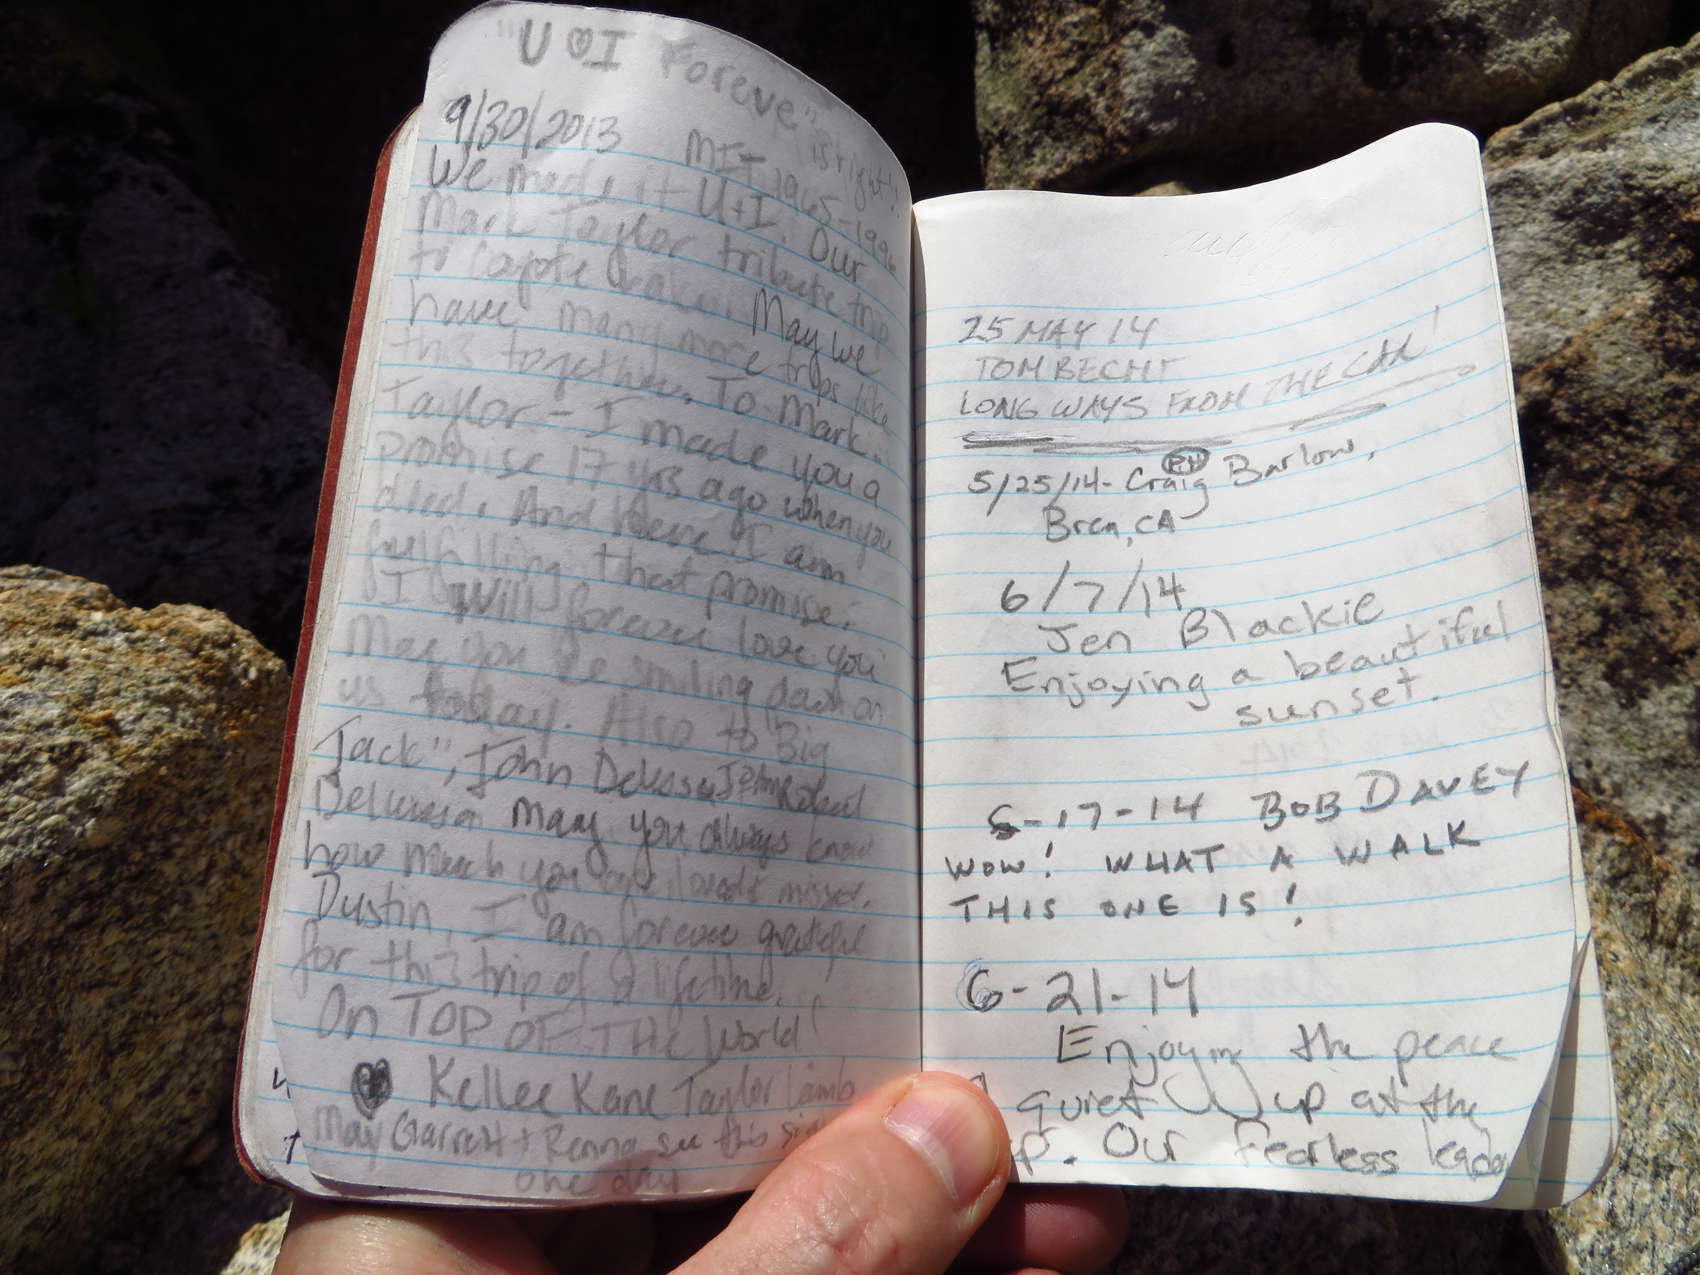 "U ♡ I Foreve" is right!!
9/30/2013 MIT 1965-1996
We made it U+I. Our
Mark Taylor tribute trip
to Coyote May we
have many more trips like
this together. To Mark
Taylor - I made you a
promise 17 yrs ago when you
died. And Here I am
fulfilling that promise.
I Will forever love you
May you be smiling down on
us today. Also to "Big
Jack", John Robert
May you always know
how much you are loved & missed.
Dustin, I am forever grateful
for this trip of a lifetime.
On TOP OF THE World!
♥ Kellee Kane Taylor Lamb
May Garrett + Renna see this
one day
25 MAY 14
TOM BECHT
LONG WAYS FROM THE CAR!
5/25/14 - Craig Barlow,
Brea, CA
6/7/14
Jen Blackie
Enjoying a beautiful
sunset.
-17-14 BOB DAVEY
WOW! WHAT A WALK
THIS ONE IS!
6-21-14
Enjoying the peace
quiet up at the
Our Fearless leader